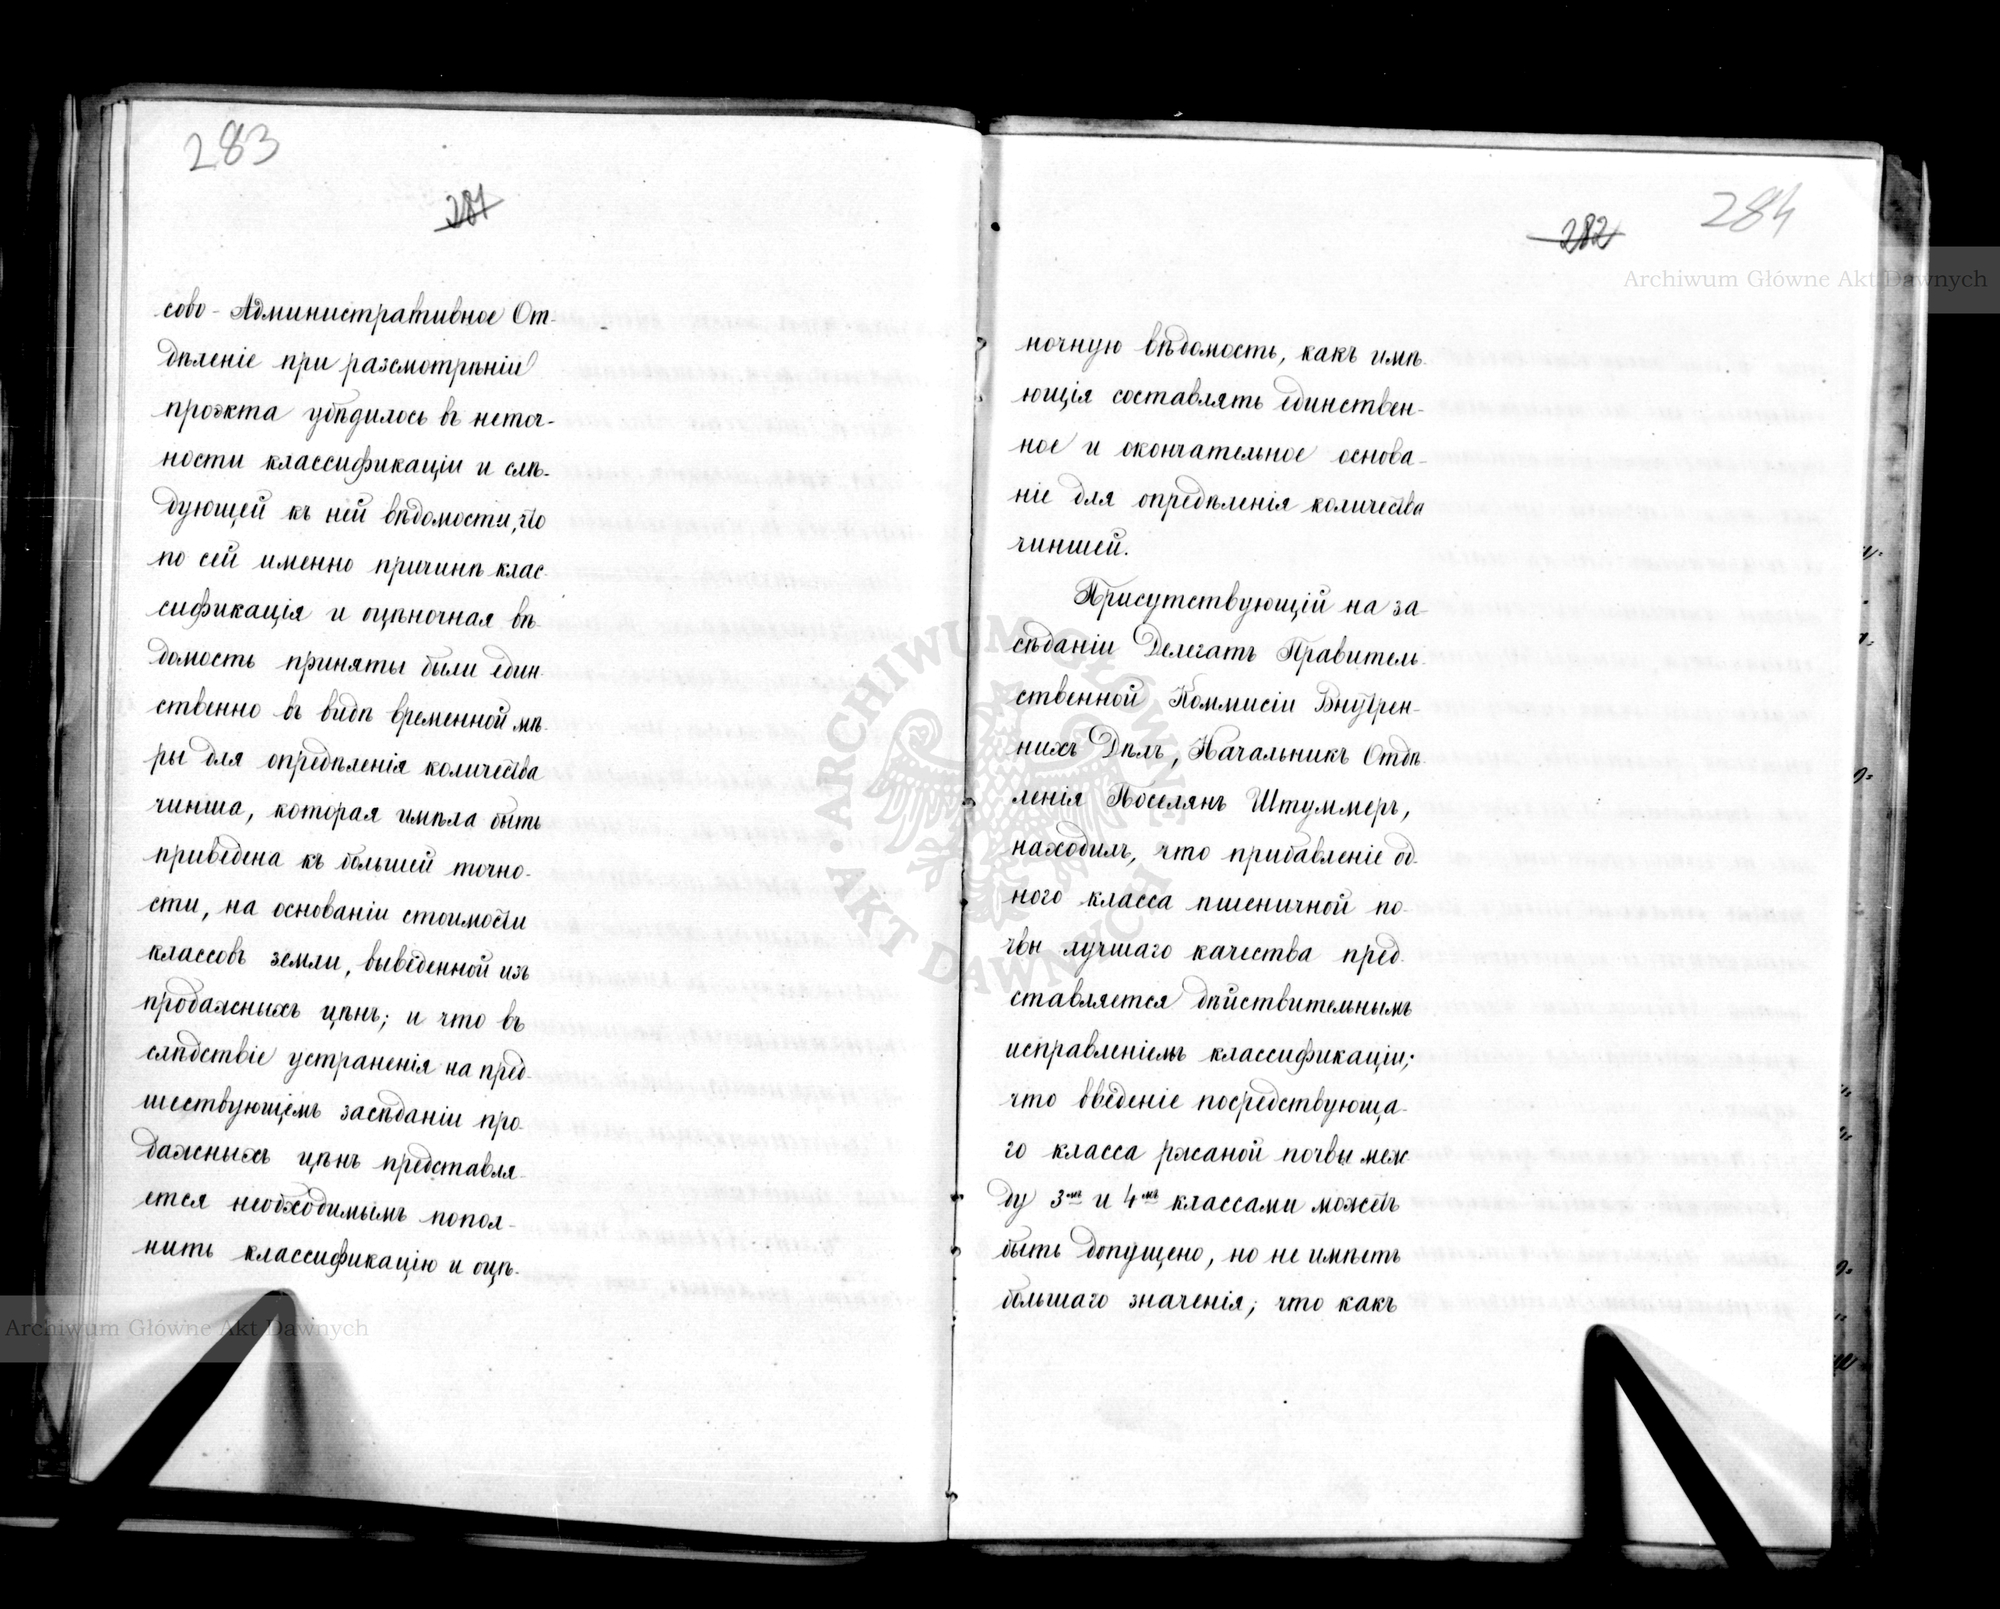 283
281
сово-Административное От-
дѣленіе при разсмотрѣніи
проэкта убѣдилось въ неточ-
ности классификаціи и слѣ-
дующей къ ней вѣдомости, то
по сей именно причинѣ клас-
сификація и оцѣночная вѣ-
домость приняты были един-
ственно въ видѣ временной мѣ-
ры для опредѣленія количества
чинша, которая имѣла быть
приведена къ большей точно-
сти, на основаніи стоимости
классовъ земли, выведенной изъ
продажныхъ цѣнъ; и что въ
слѣдствіе устраненія на пред-
шествующемъ засѣданіи про-
дажныхъ цѣнъ представля-
ется необходимымъ попол-
нить классификацію и оцѣ-
284
282
ночную вѣдомость, какъ имѣ-
ющія составлять единствен-
ное и окончательное основа-
ніе для опредѣленія количества
чиншей.
Присутствующій на за-
сѣданіи Делегатъ Правитель-
ственной Коммисіи Внутрен-
нихъ Дѣлъ, Начальникъ Отдѣ-
ленія Поселянъ Штуммеръ,
находилъ, что прибавленіе од-
ного класса пшеничной по-
чвы лучшаго качества пред-
ставляется дѣйствительнымъ
исправленіемъ классификаціи;
что введеніе посредствующа-
го класса ржаной почвы меж-
ду 3мъ и 4мъ классами можетъ
быть допущено, но не имѣетъ
большаго значенія; что какъ
Archiwum Główne Akt Dawnych
Archiwum Główne Akt Dawnych
ARCHIWUM GŁÓWNE AKT DAWNYCH